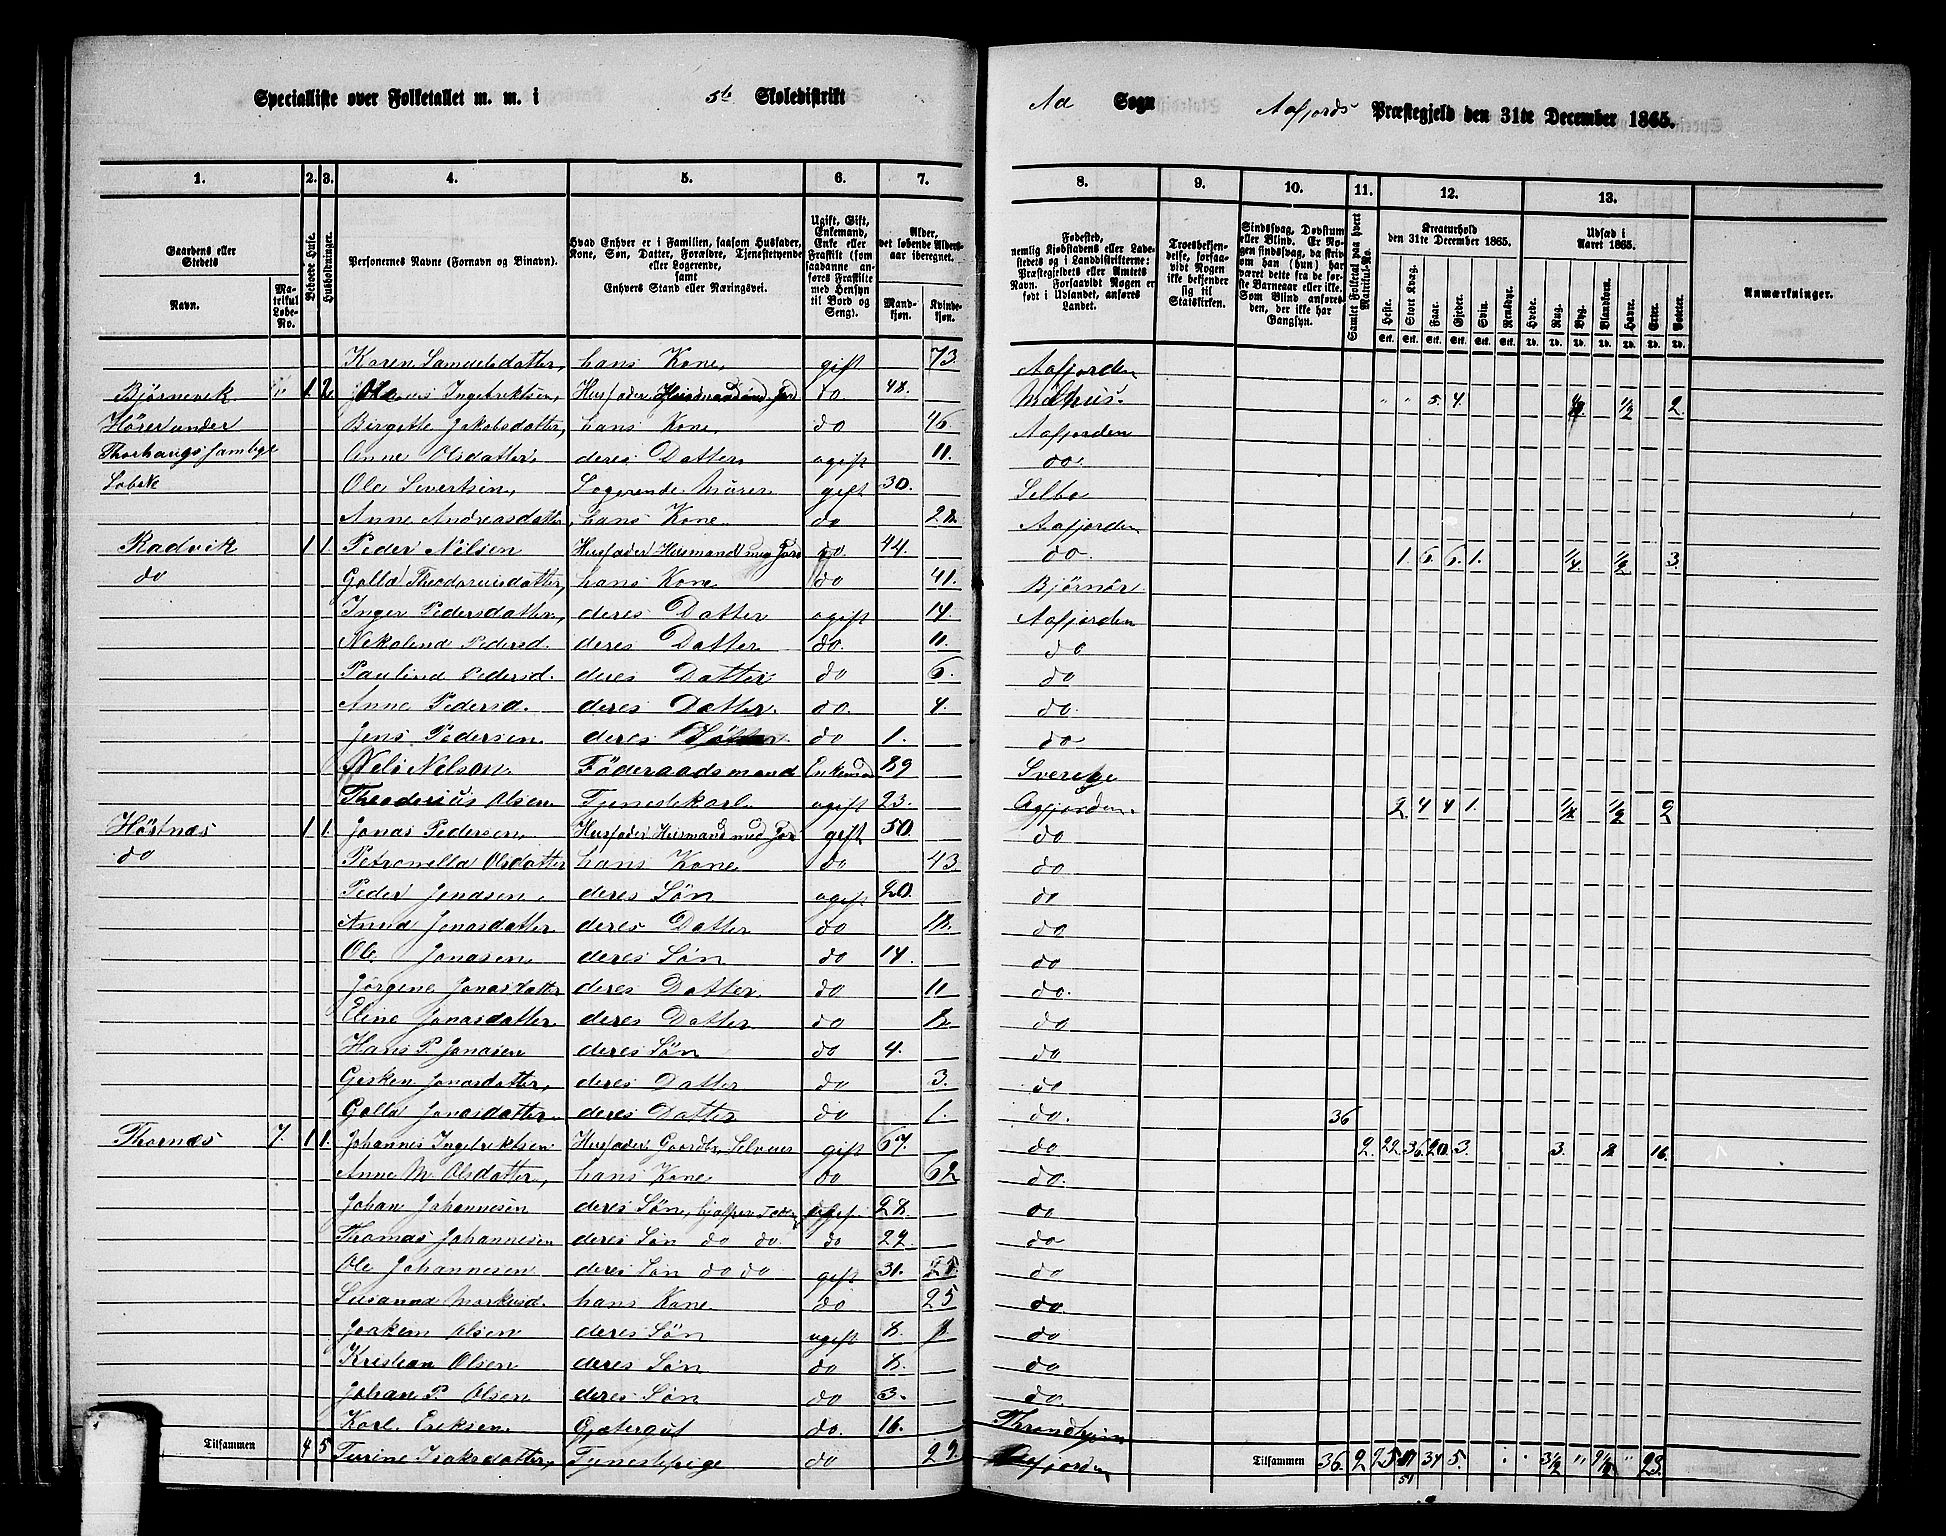 Specialliste over Folketallet m. m. i 5te Skoledistrikt Aa Sogn Aafjords Præstegjeld den 31te December 1865.
1. 2. 3. 4. 5. 6. 7. 8. 9. 10. 11. 12. 13.
Gaardens eller Stedets
Navn.
Matrikul Løbe-No.
Beboede Huse.
Husholdninger.
Personernes Navne (Fornavn og Binavn).
Hvad Enhver er i Familien, saasom Husfader, Kone, Søn, Datter, Forældre, Tjenestetyende eller Logerende, samt Enhvers Stand eller Næringsvei.
Ugift, Gift, Enkemand, Enke eller Fraskilt (som saadanne anføres Fraskilte med Hensyn til Bord og Seng).
Alder, det løbende Alders-aar iberegnet.
Mandkjøn. Kvindekjøn.
Fødested, nemlig Kjøbstadens eller Ladestedets og i Landdistrikterne: Præstegjeldets eller Amtets Navn. Forsaavidt Nogen er født i Udlandet, anføres Landet.
Troesbekjendelse, forsaavidt Nogen ikke bekjender sig til Statskirken.
Sindssvag, Døvstum eller Blind. Er Nogen sindssvag, da skrives om han (hun) har været dette fra de første Barneaar eller ikke. Som Blind anføres den, der ikke har Gangsyn.
Samlet Folketal paa hvert Matrikul-No.
Kreaturhold den 31te December 1865.
Heste. Stort Kvæg. Faar. Gjeder. Svin. Rensdyr.
Udsæd i Aaret 1865.
Hvede. Rug. Byg. Blandkorn. Havre. Erter. Poteter.
Anmærkninger.
Karen Samuelsdatter, hans Kone, gift 73 Aafjorden
Bjørnevik 1. 2. Ole Ingebriktsen, Husfader Huusmand med Jord do 48. Melhus. " " 5. 4. 1/2 2.
Hører under Birgitte Jakobsdatter, hans Kone do 46 Aafjorden
Anne Olsdatter, deres Datter ugift 11. do
Ole Sivertsen, Logerende Murer gift 30. Selbo
Anne Andreasdatter, hans Kone. do 28. Aafjorden
Radvik 1. 1. Peder Nilsen Husfader Husmand med Jord do. 44. do. 1. 6. 6. 1. 1/4. 1/2 3.
do Golla Theodoriusdatter, hans Kone do 41. Bjørnør
Inger Pedersdatter, deres Datter ugift 14. Aafjorden
Nekoline Pedersd. deres Datter do. 11. do
Pauline Pedersd. deres Datter do 6. do
Anne Pedersd. deres Datter do. 4. do.
Jens Pedersen deres do 1. do
Nels Nelson Föderaadsmand Enkemand 89 Sverige
Theodorius Olsen Tjenestekarl ugift 23. Aafjorden. 2 4 4 1. 1/4 1/2 2
Høstnæs 1. 1. Jonas Pedersen, Husfader Husmand med Jord gift 50. do
do Petronella Olsdatter hans Kone do 43. do.
Peder Jonasen. deres Søn ugift 20. do
Anna Jonasdatter deres Datter do 18. do
Ole Jonasen deres Søn do 14. do
Jørgine Jonasdatter deres Datter. do 11 do.
Eline Jonasdatter. deres Datter do 8. do
Hans P. Jonasen deres Søn do 4. do
Gjesken Jonasdatter, deres Datter do 3. do
Golla Jonasdatter. deres Datter do 1. do. 36
Thornæs 7. 1. 1. Johannes Ingebriktsen Husfader Gaardbr. Selveier gift 67. do 2. 22. 36. 20. 3. 3. 8 16.
Anne M Olsdatter, hans Kone do 62 do.
Johan Johannesen deres Søn, hjælper Fader ugift. 28. do
Thomas Johannesen deres Søn do do. do 22. do
Ole Johannesen deres Søn do do gift 31. do
Susanna Markusd. hans Kone do 25 do.
Joakim Olsen deres Søn ugift 8. do
Kristian Olsen deres Søn do 8. do
Johan P. Olsen deres Søn do 3. do.
Karl Eriksen. Gjætergut do. 16. Throndhjem
Turine Isaksdatter, Tjenestepige do 22. Aafjorden
Tilsammen 4 5 Tilsammen 36. 2 25 51 34 5. 28.